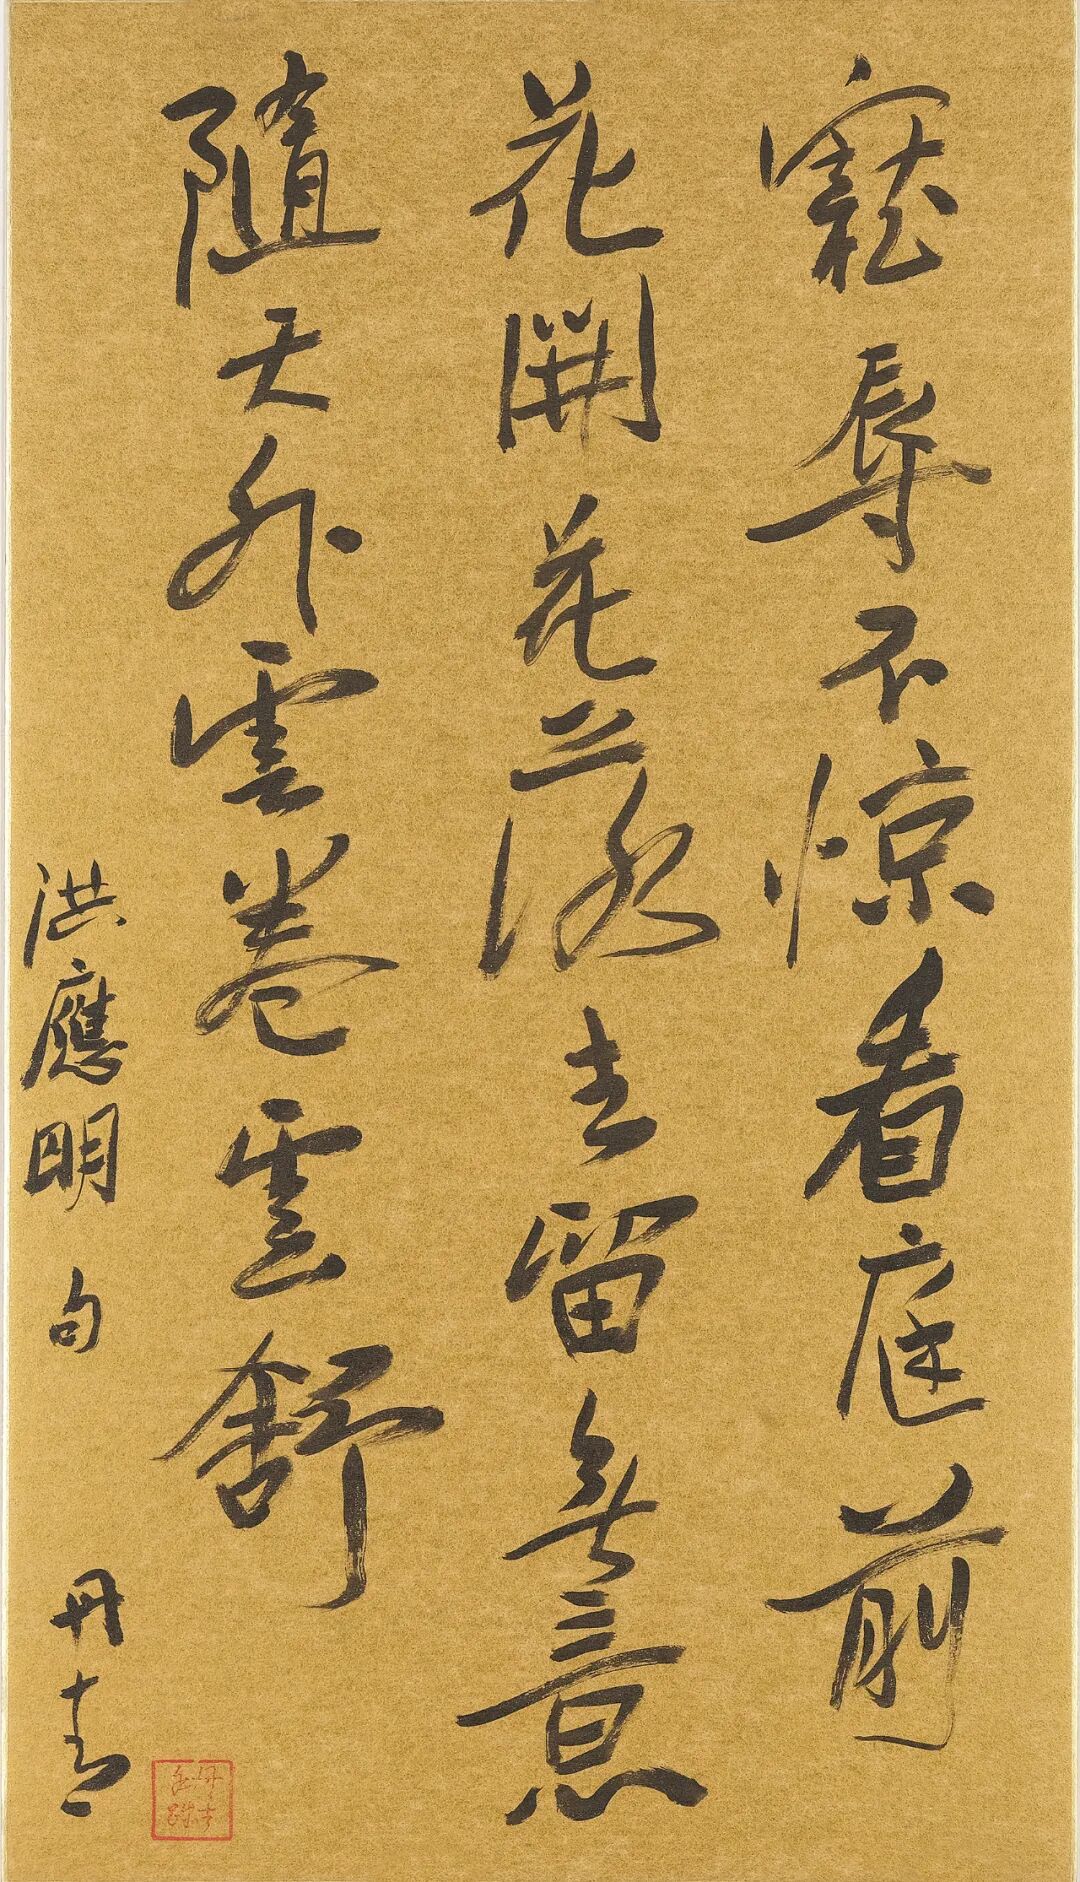 寵辱不惊看庭前
花開花落去留無意
隨天外雲卷雲舒
洪應明句 丹青